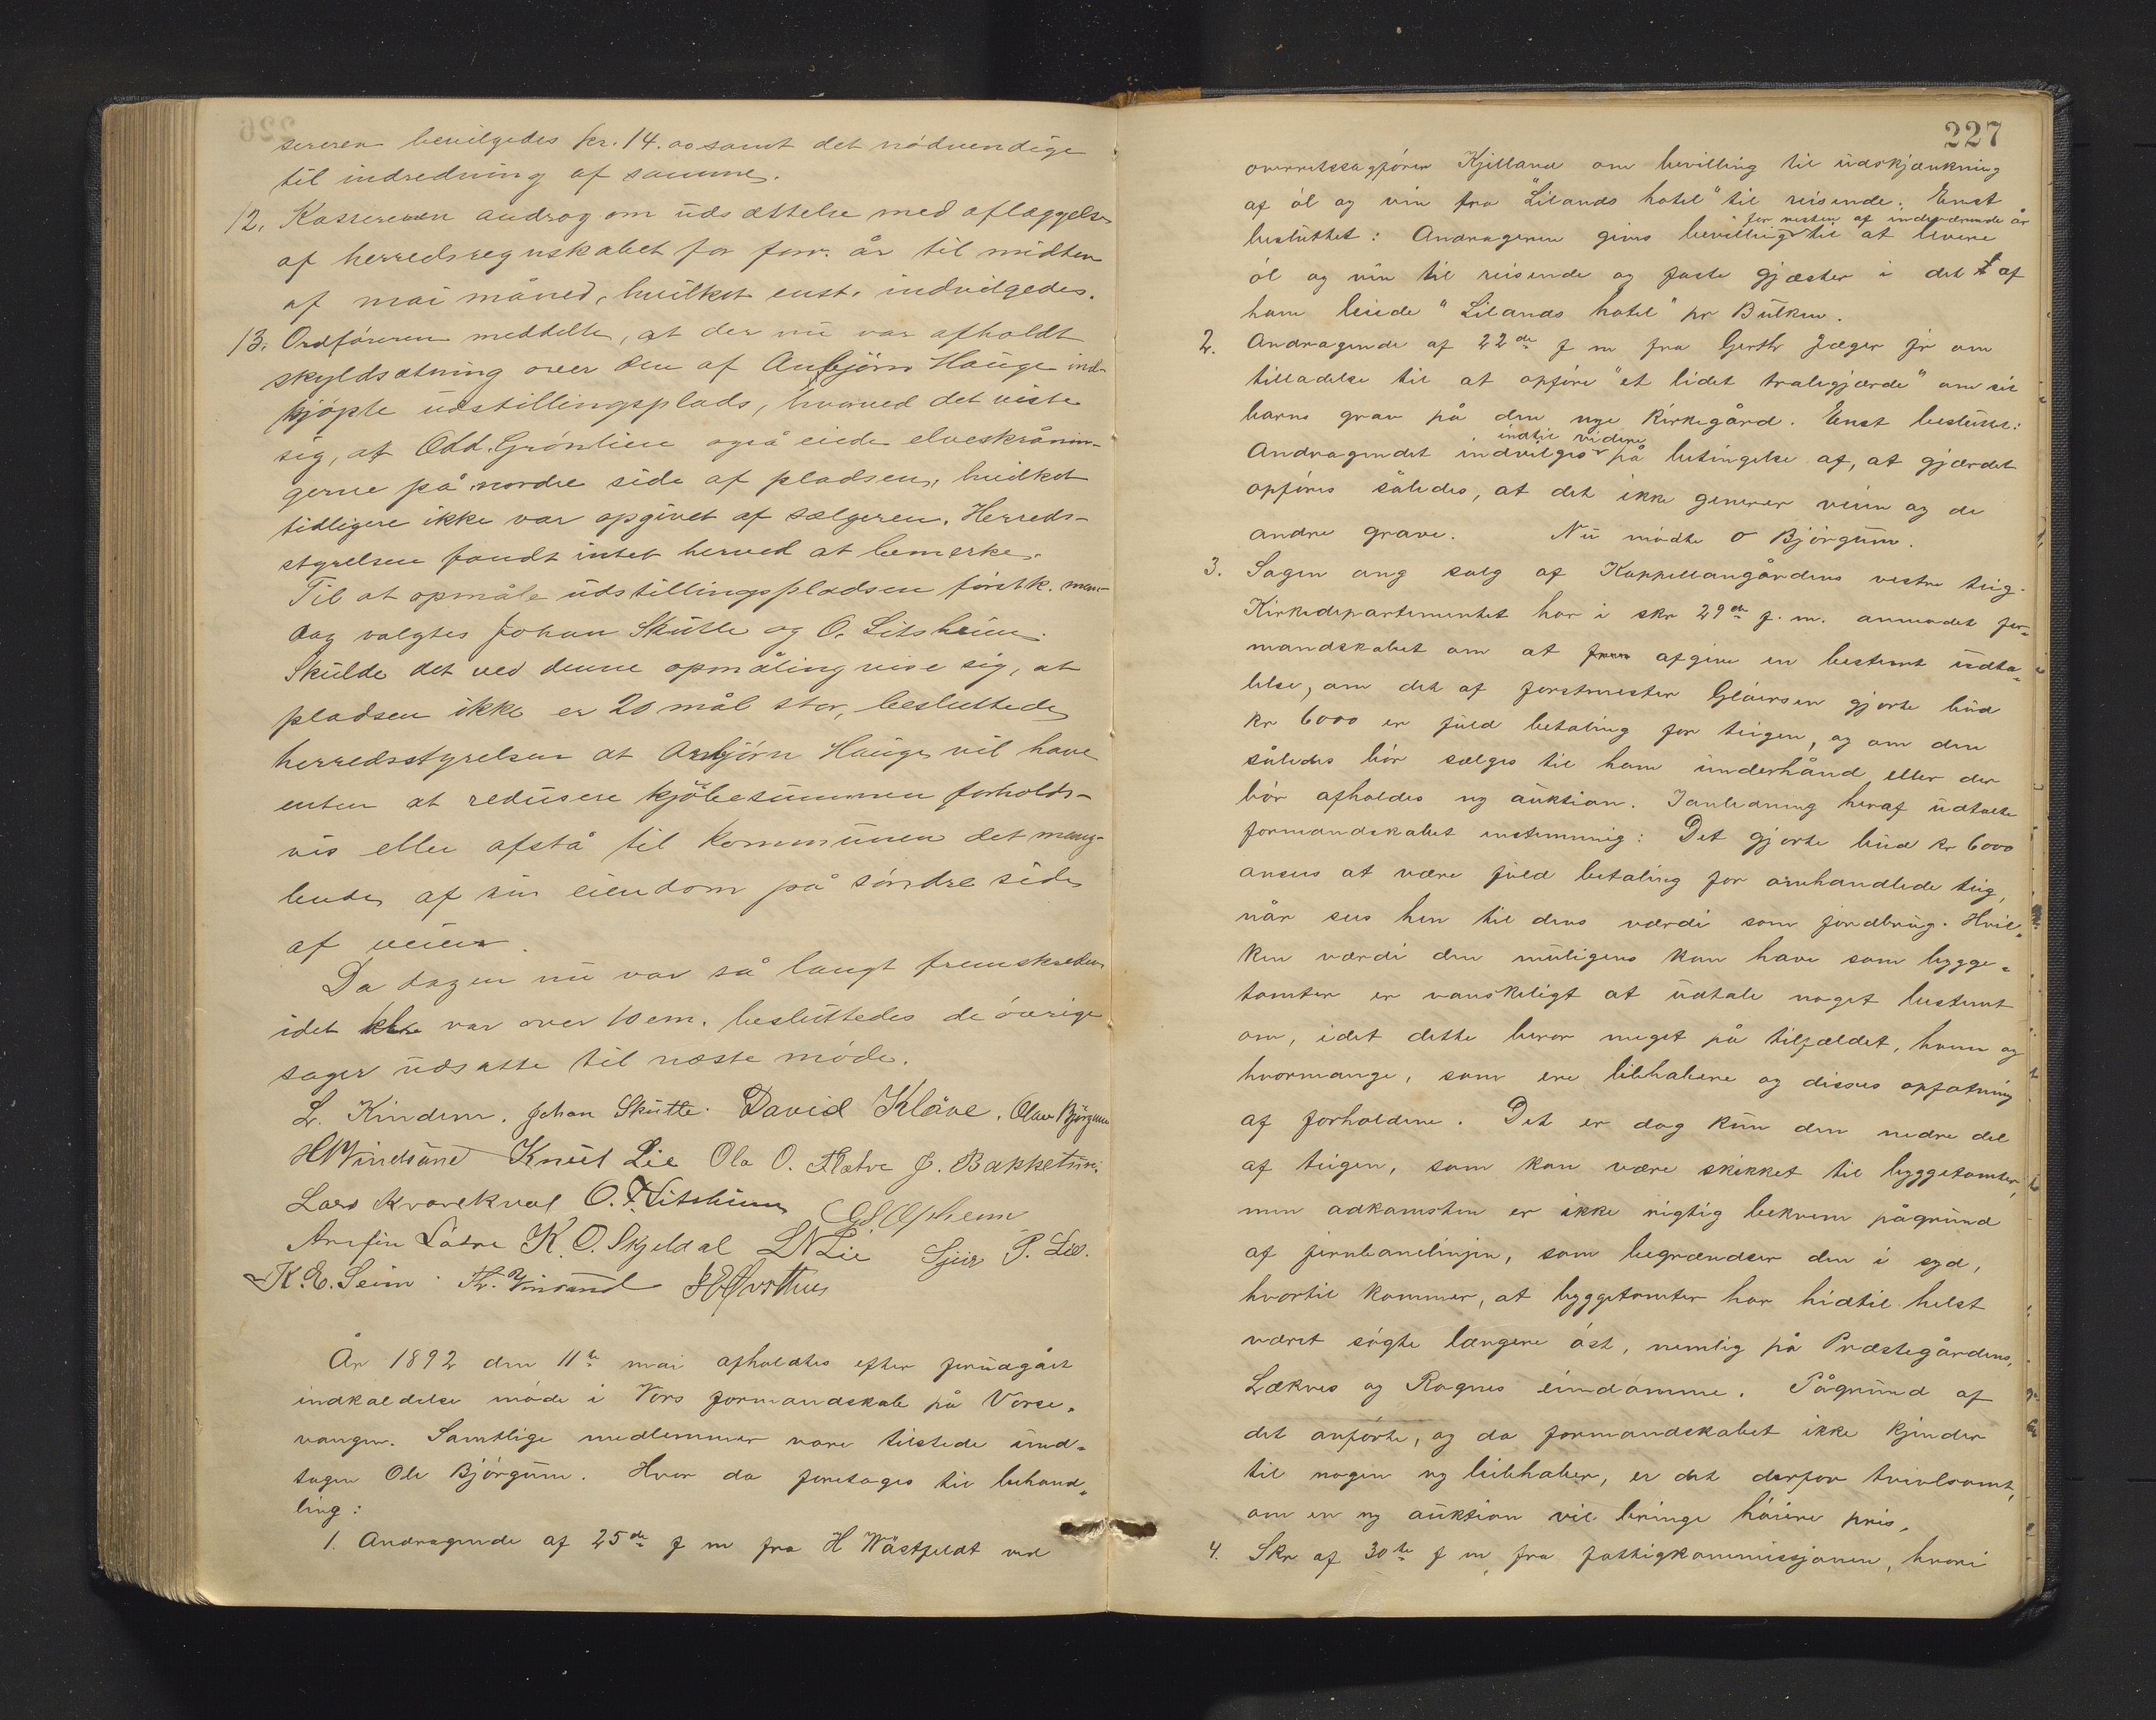 sereren bevilgedes kr. 14.00 samt det nödvendige
til indredning af samme.
12. Kassereren androg om udsættelse med aflæggelse
af herredsregnskabet for forr. år til midten
af mai måned, hvilket enst. indvilgedes.
13. Ordföreren meddelte, at der nu var afholdt
skyldsætning over den af Anbjörn Hauge ind-
kjöpte udstillingsplads, hvorved det viste
sig, at Odd. Grönlien også eiede elveskrånin-
gerne på nordre side af pladsen, hvilket
tidligere ikke var opgivet af sælgeren. Herreds-
styrelsen fandt intet herved at bemerke.
Til at opmåle udstillingspladsen förstk. man-
dag valgtes Johan Skutle og O. Litsheim.
Skulde det ved denne opmåling vise sig, at
pladsen ikke er 20 mål stor, besluttede
herredsstyrelsen at Anbjörn Hauge vil have
enten at redusere kjöbesummen forholds-
vis eller afstå til kommunen det mang-
lende af sin eiendom på söndre side
af veien.
Da dagen nu var så langt fremskreden
idet kl. var over 10 em. besluttedes de övrige
sager udsatte til næste möde.
L. Kindem. Johan Skutle. David Klöve. Olav Björgum
H Vindsand Knut Lie Ola O. Flatre J. Bakketun.
Lars Kvarekval O. T. Litsheim G S. Opheim
Arnfin Låtre K. O. Skjeldal L N Lie Sjur P. Lid.
K. E. Seim. Th. Vinsand
År 1892 den 11te mai afholdtes efter forudgået
indkaldelse möde i Vors formandskab på Vosse-
vangen. Samtlige medlemmer vare tilstede und-
tagen Ole Björgum. Hvor da foretoges til behand-
ling:
1. Andragende af 25de f m fra H Wåstfeldt ved
227
overretssagförer Kjelland om bevilling til udskjænkning
af öl og vin fra "Lilands hotel" til reisende. Enst
for resten af indeværende år
besluttet: Andrageren gives bevilling til at levere
öl og vin til reisende og faste gjæster i det af
ham leiede "Lilands hotel" pr Bulken.
2. Andragende af 22de f m fra Gerhr Jæger jr om
tilladelse til at opföre "et lidet traligjærde" om sit
barns grav på den nye kirkegård. Enst besluttet:
indtil videre
Andragendet indvilges på betingelse af, at gjærdet
opföres således, at det ikke generer veien og de
andre grave. Nu mödte O Björgum.
3. Sagen ang salg af Kappellangårdens vestre teig.
Kirkedepartementet har i skr 29de f. m. anmodet for-
mandskabet om at afgive en bestemt udta-
lelse, om det af forstmester Glöersen gjorte bud
kr 6000 er fuld betaling for teigen, og om den
således bör sælges til ham underhånd eller der
bör afholdes ny auktion. I anledning heraf udtalte
formandskabet enstemmig: Det gjorte bud kr 6000
ansees at være fuld betaling for omhandlede teig,
når sees hen til dens værdi som jordbrug. Hvil-
ken værdi den muligens kan have som bygge-
tomter er vanskeligt at udtale noget bestemt
om, idet dette beror meget på tilfældet, hvem og
hvormange, som ere liebhabere og disses opfatning
af forholdene. Det er dog kun den nedre del
af teigen, som kan være skikket til byggetomter,
men adkomsten er ikke rigtig bekvem pågrund
af jernbanelinjen, som begrændser den i syd,
hvortil kommer, at byggetomter har hidtil helst
været sögte længere öst, nemlig på Præstegårdens,
Lækves og Rognes eiendomme. Pågrund af
det anförte, og da formandskabet ikke kjender
til nogen ny liebhaber, er det derfor tvivlsomt,
om en ny auktion vil bringe höiere pris.
4. Skr af 30te f m, fra fattigkommissjonen, hvori